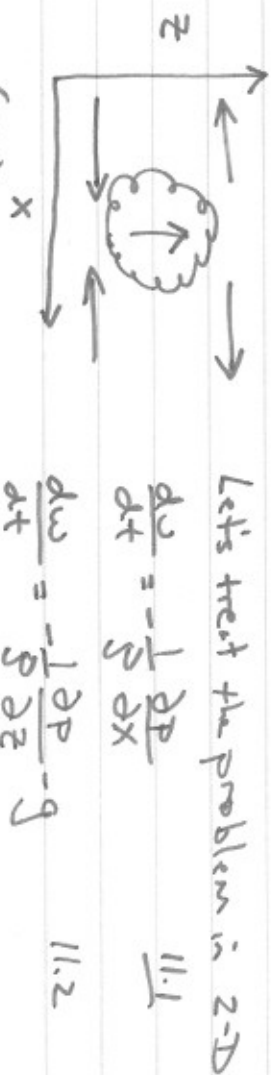 Let's treat the problem in 2-D
z
du/dt = -1/ρ ∂p/∂x 11.1
x
dw/dt = -1/ρ ∂p/∂z - g 11.2